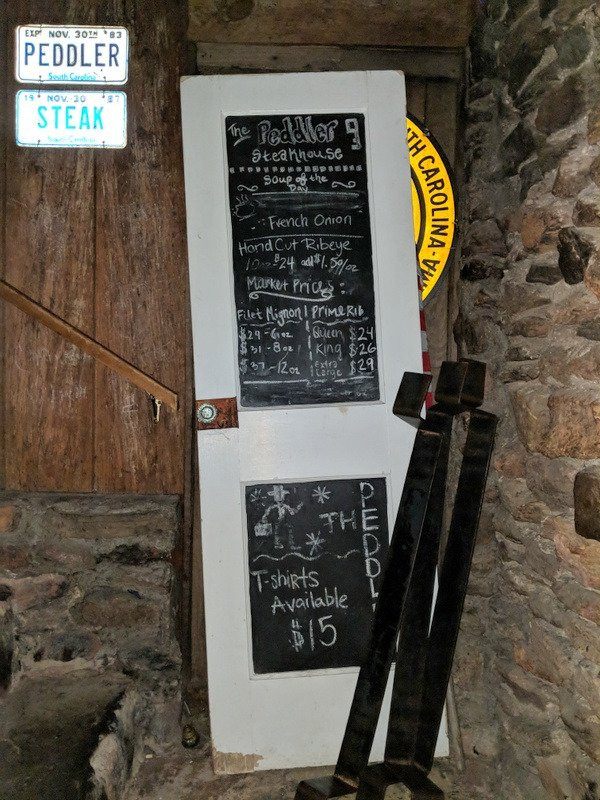 EXP NOV. 30TH '83
PEDDLER
South Carolina
19 NOV. 30 87
STEAK
South Carolina
TH CAROLINA
The Peddler
Steakhouse
Soup of the
Day
French Onion
Hand Cut Ribeye
10oz $24 add $1.50/oz
Market Prices:
Filet Mignon | Prime Rib
$29 - 6oz Queen $24
$31 - 8oz King $26
$37 - 12oz Extra Large $29
TH
PEDDL
T-shirts
Available
$15